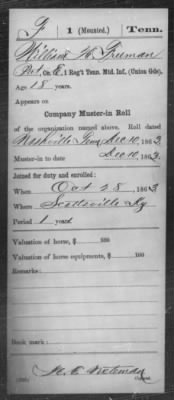 F 1 (Mounted.) Tenn.
William H. Freeman
Pvt., Co. E, 1 Reg't Tenn. Mtd. Inf. (Union Gds).
Age 18 years.
Appears on
Company Muster-in Roll
of the organization named above. Roll dated
Nashville Tenn, Dec 10, 1863.
Muster-in to date Dec 10, 1863.
Joined for duty and enrolled:
When Oct 28, 1863
Where Scottsville Ky
Period 1 years.
Valuation of horse, $ 100
Valuation of horse equipments, $ 100
Remarks:
Book mark:
Copyist.